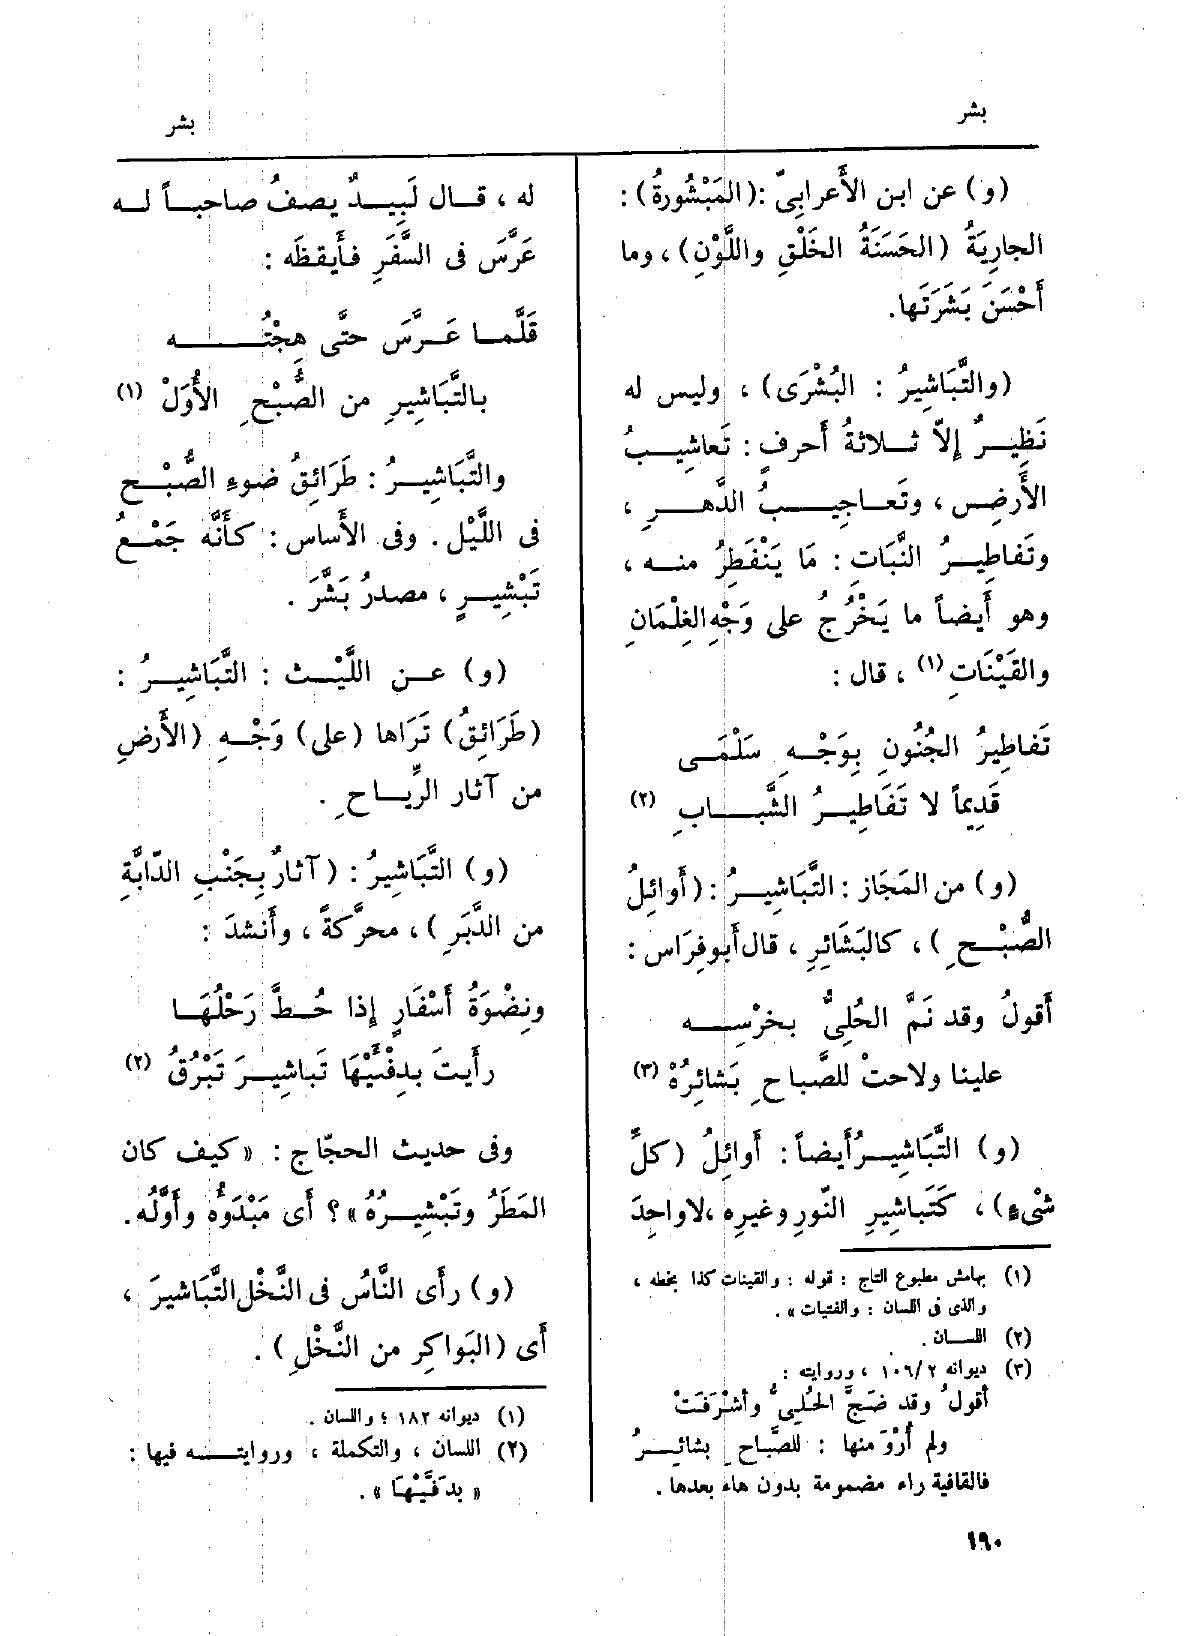 بشر
بشر
(و) عن ابن الأَعرابيّ :(المَبْشُورةُ) :
الجارِيَةُ (الحَسَنَةُ الخَلْقِ واللَّوْنِ) ، وما
أَحْسَنَ بَشَرَتَها.
(والتَّبَاشِيرُ : البُشْرَى) ، وليس له
نَظِيرٌ إلاّ ثلاثةُ أَحرفٍ : تَعاشِيبُ
الأَرضِ ، وتَعاجِيبُ الدَّهرِ ،
وتَفاطِيرُ النَّبَاتِ : مَا يَنْفَطِرُ منه ،
وهو أَيضاً ما يَخْرُجُ على وَجْهِ الغِلْمَانِ
والقَيْنَاتِ (١) ، قال :
تَفاطِيرُ الجُنُونِ بِوَجْهِ سَلْمَى
قَدِيماً لا تَفَاطِيرُ الشَّبابِ (٢)
(و) من المَجَاز : التَّبَاشِيرُ : (أَوائِلُ
الصُّبْحِ ) ، كالبَشَائِرِ ، قال أَبو فِرَاس :
أَقولُ وقد نَمَّ الحُلِيُّ بخرْسِه
علينا ولاحتْ للصَّباحِ بَشائِرُهْ (٣)
(و) التَّبَاشِيرُ أَيضاً : أَوائِلُ (كلِّ
شْيءٍ) ، كَتَباشِيرِ النَّورِ وغيرِه ، لا واحِدَ
(١) بهامش مطبوع التاج : قوله : والقينات كذا بخطه ،
والذى فى اللسان : والفتيات » .
(٢) اللسان .
(٣) ديوانه ١٠٦/٢ ، وروايته :
أقولُ وقد ضَجَّ الحُلِىُّ وأشْرَفَتْ
ولم أَرْوَ منها : للصَّباحِ بشائرُ
فالقافية راء مضمومة بدون هاء بعدها .
له ، قال لَبِيدٌ يصفُ صاحباً له
عَرَّسَ فى السَّفَرِ فأَيقظَه :
قَلَّما عَرَّسَ حتَّى هِجْتُه
بالتَّبَاشِيرِ من الصُّبْحِ الأُوَلْ (١)
والتَّبَاشِيرُ : طَرَائِقُ ضوءِ الصُّبْحِ
فى اللَّيْل . وفى الأَساس : كأَنَّه جَمْعُ
تَبْشِيرٍ ، مصدرُ بَشَّرَ .
(و) عن اللَّيْث : التَّبَاشِيرُ :
(طَرَائِقُ) تَرَاها (على) وَجْهِ (الأَرضِ
من آثار الرِّياحِ .
(و) التَّبَاشِيرُ : (آثارٌ بِجَنْبِ الدّابَّةِ
من الدَّبَرِ ) ، محرَّكةً ، وأَنشدَ :
ونِضْوَةُ أَسْفَارٍ إذا حُطَّ رَحْلُهَا
رأَيتَ بدِفْئَيْهَا تَباشِيرَ تَبْرُقُ (٢)
وفى حديث الحجّاج : « كيف كان
المَطَرُ وتَبْشِيرُهُ » ؟ أَى مَبْدَؤُه وأَوَّلُه .
(و) رأَى النَّاسُ فى النَّخْل التَّبَاشيرَ ،
أَى (البَواكِر من النَّخْلِ ) .
(١) ديوانه ١٨٢ ؛ واللسان .
(٢) اللسان ، والتكملة ، وروايته فيها :
« بدَفَّيْها » .
١٩٠